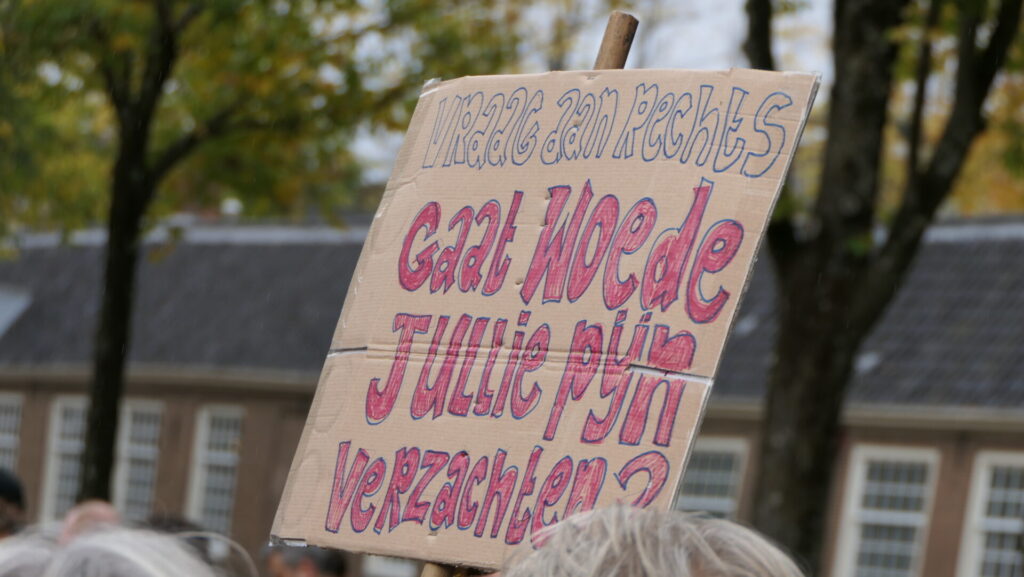 VRAAG AAN RECHTS
GAAT WOEDE
JULLIE PIJN
VERZACHTEN?